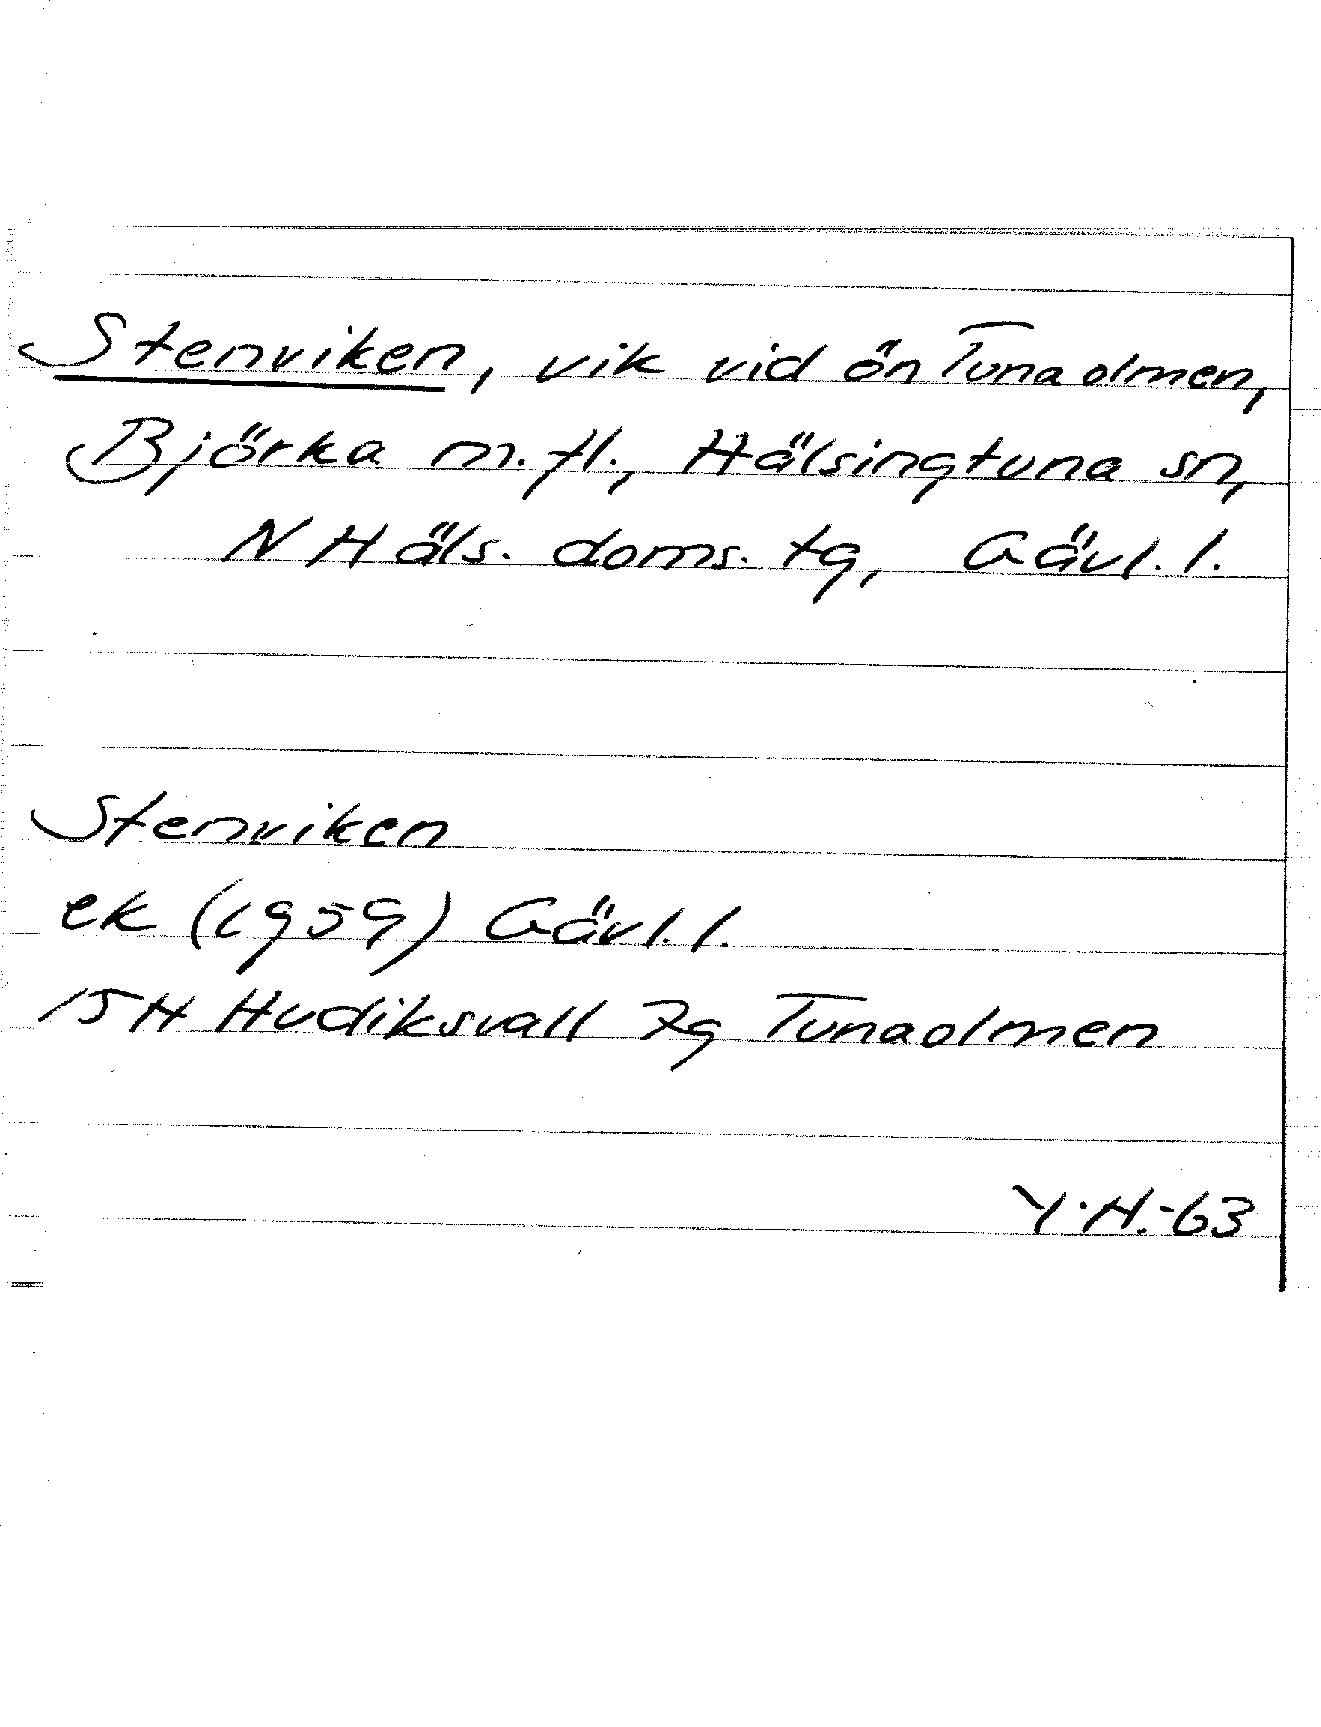 Stenviken, vik vid ön Tunaolmen,
Björka m.fl., Hälsingtuna sn,
N Häls. doms. tg, Gävl. l.
Stenviken
ek (1959) Gävl. l.
15H Hudiksvall 7g Tunaolmen
Y.H.-63